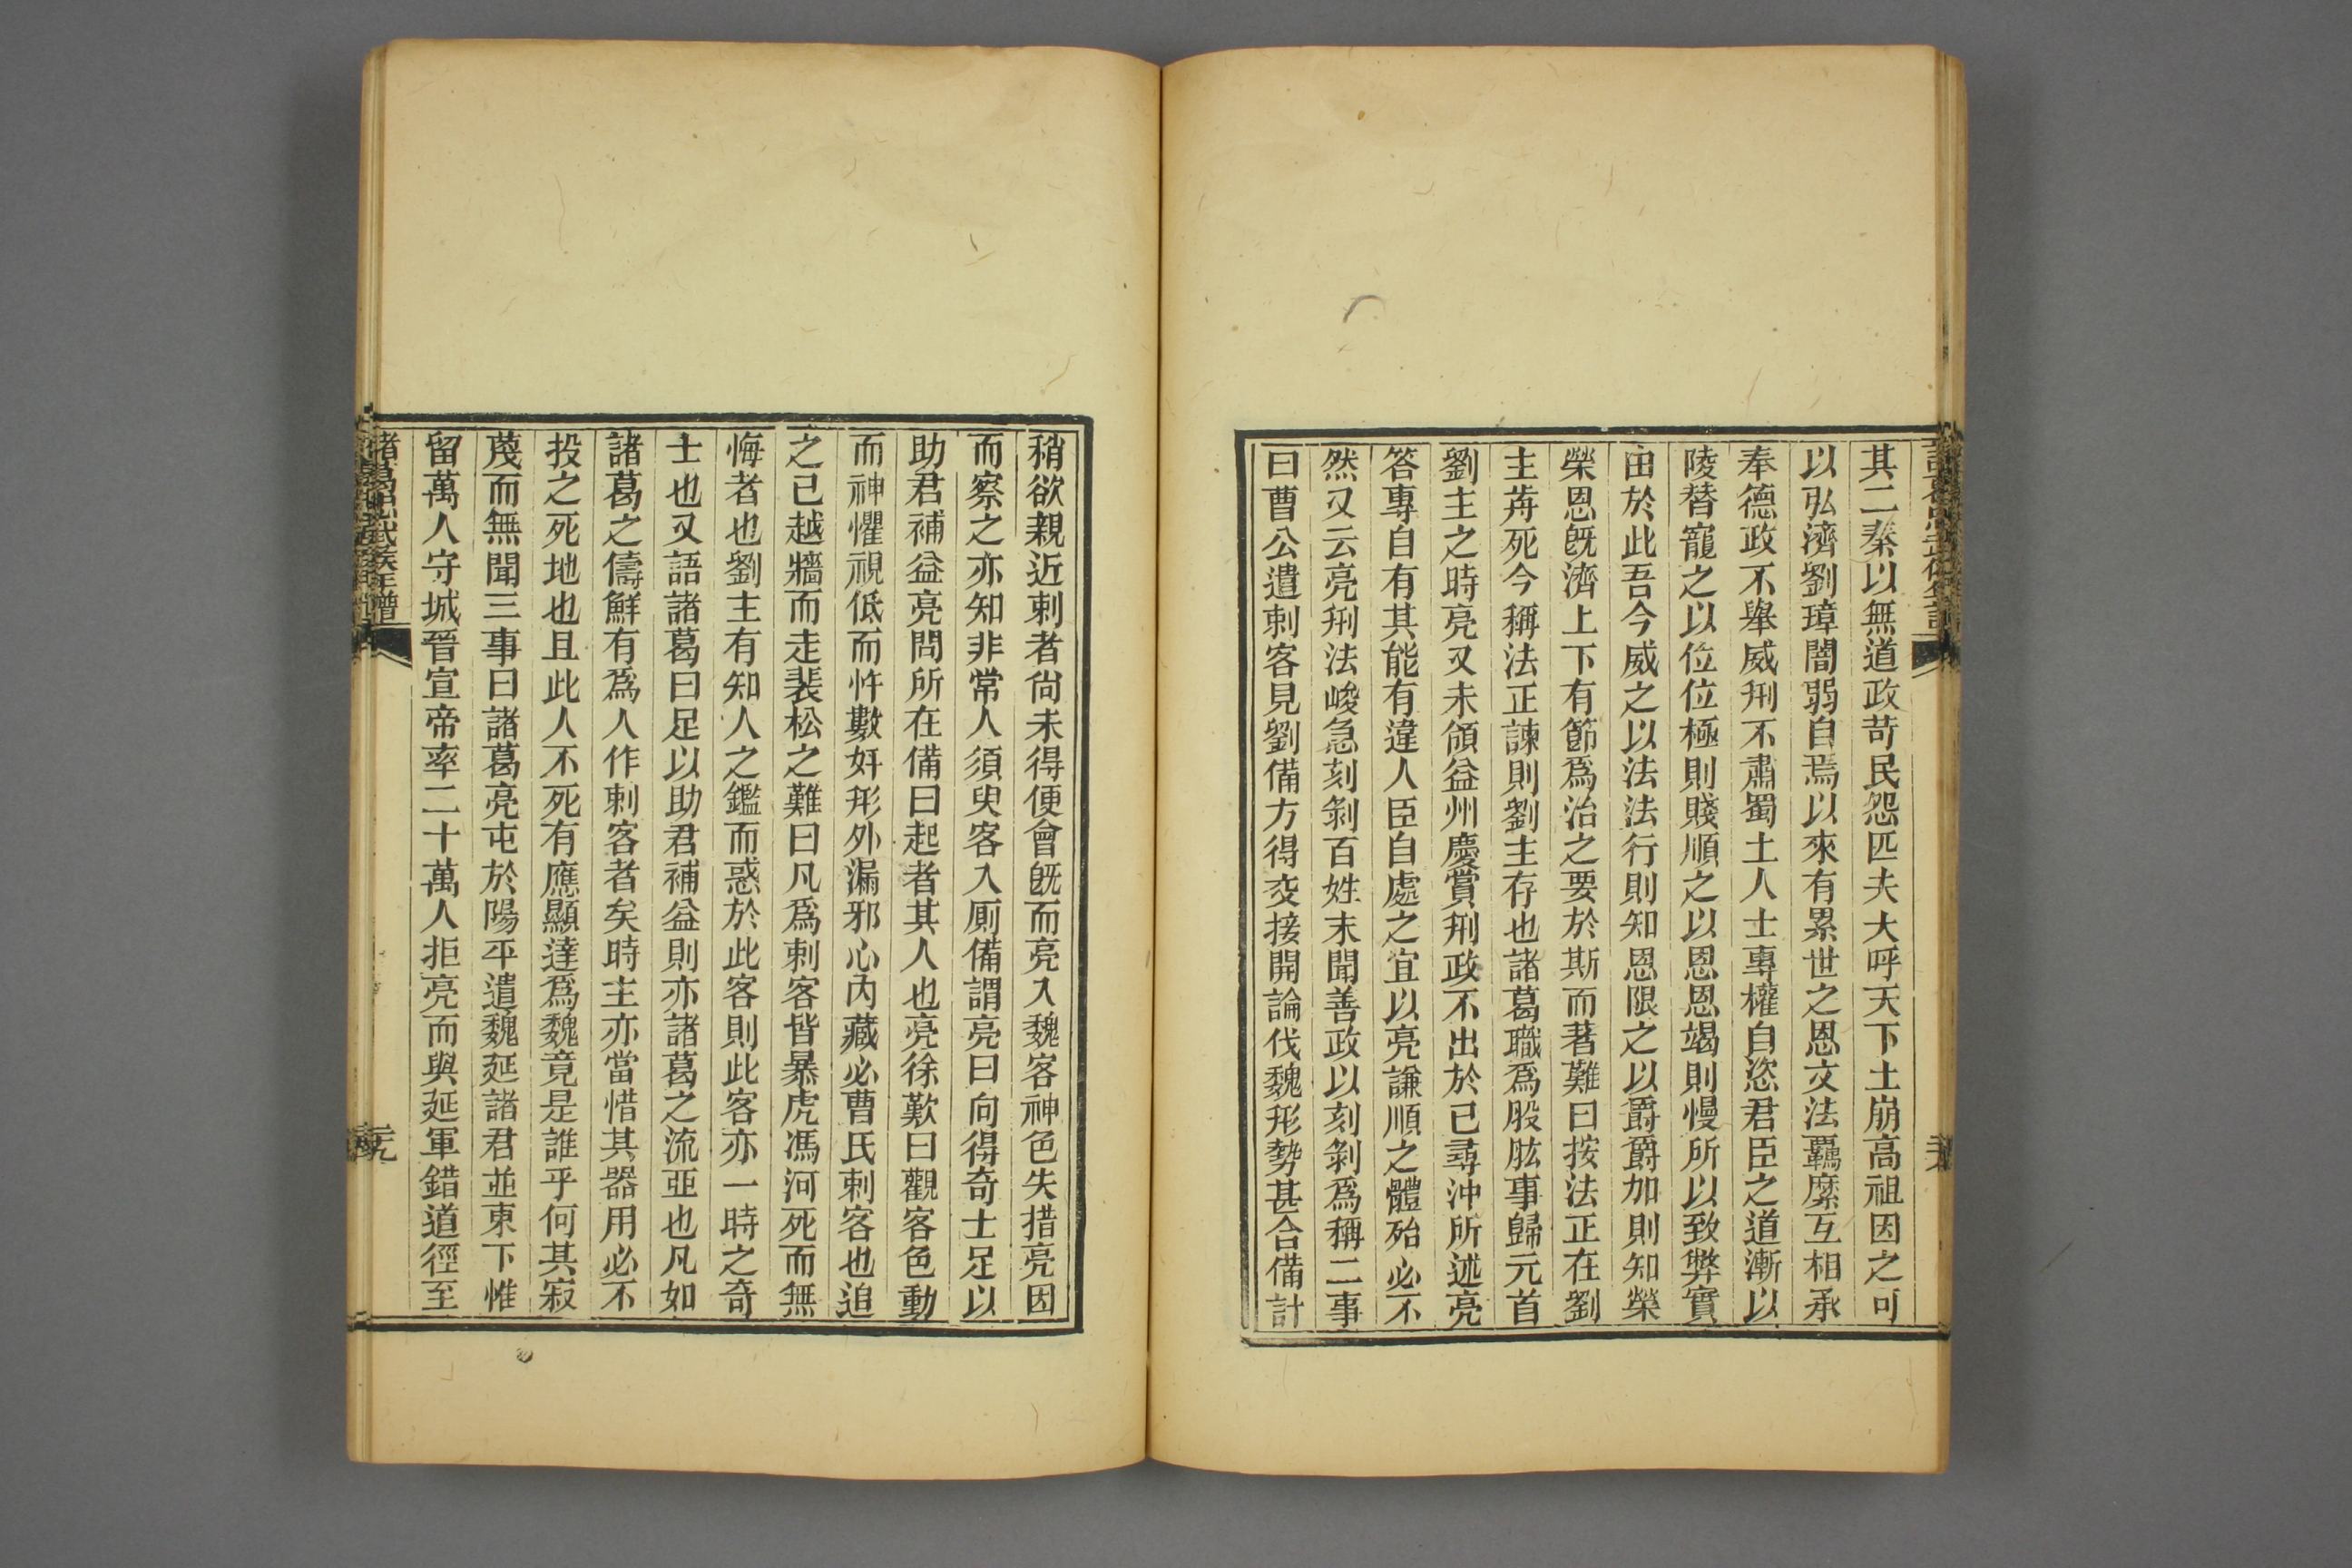 其二秦以無道政苛民怨匹夫大呼天下土崩高祖因之可
以弘濟劉璋闇弱自焉以來有累世之恩文法羈縻互相承
奉德政不舉威刑不肅蜀土人士專權自恣君臣之道漸以
陵替寵之以位位極則賤順之以恩恩竭則慢所以致弊實
由於此吾今威之以法法行則知恩限之以爵爵加則知榮
榮恩旣濟上下有節爲治之要於斯而著難曰按法正在劉
主歬死今稱法正諫則劉主存也諸葛職爲股肱事歸元首
劉主之時亮又未領益州慶賞刑政不出於己尋沖所述亮
答專自有其能有違人臣自處之宜以亮謙順之體殆必不
然又云亮刑法峻急刻剝百姓未聞善政以刻剝爲稱二事
曰曹公遣刺客見劉備方得交接開論伐魏形勢甚合備計
稍欲親近刺者尙未得便會旣而亮入魏客神色失措亮因
而察之亦知非常人須臾客入厠備謂亮曰向得奇士足以
助君補益亮問所在備曰起者其人也亮徐歎曰觀客色動
而神懼視低而忤數奸形外漏邪心內藏必曹氏刺客也追
之已越牆而走裴松之難曰凡爲刺客皆暴虎馮河死而無
悔者也劉主有知人之鑑而惑於此客則此客亦一時之奇
士也又語諸葛曰足以助君補益則亦諸葛之流亞也凡如
諸葛之儔鮮有爲人作刺客者矣時主亦當惜其器用必不
投之死地也且此人不死有應顯達爲魏竟是誰乎何其寂
蔑而無聞三事曰諸葛亮屯於陽平遣魏延諸君並東下惟
留萬人守城晉宣帝率二十萬人拒亮而與延軍錯道徑至
諸葛忠武侯年譜